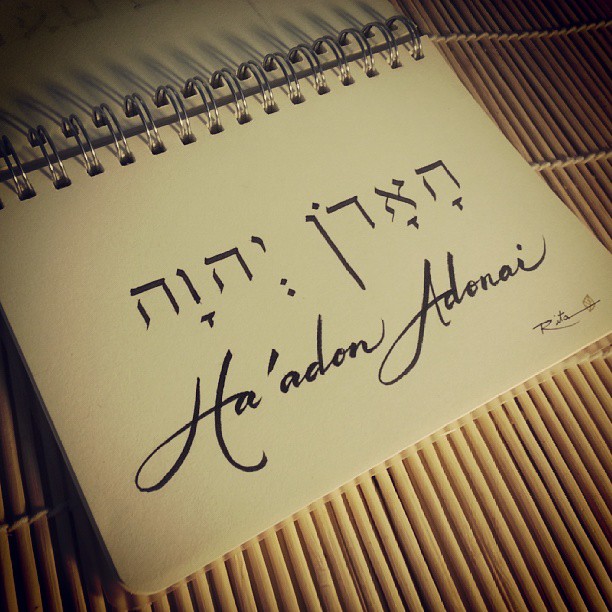 הָאָדֹן יְהוָה
Ha'adon Adonai
Rita